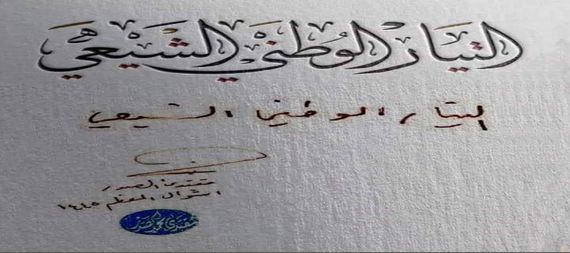 التيار الوطني الشيعي
التيار الوطني الشيعي
مقتدى الصدر
شوال المعظم ١٤٤٥